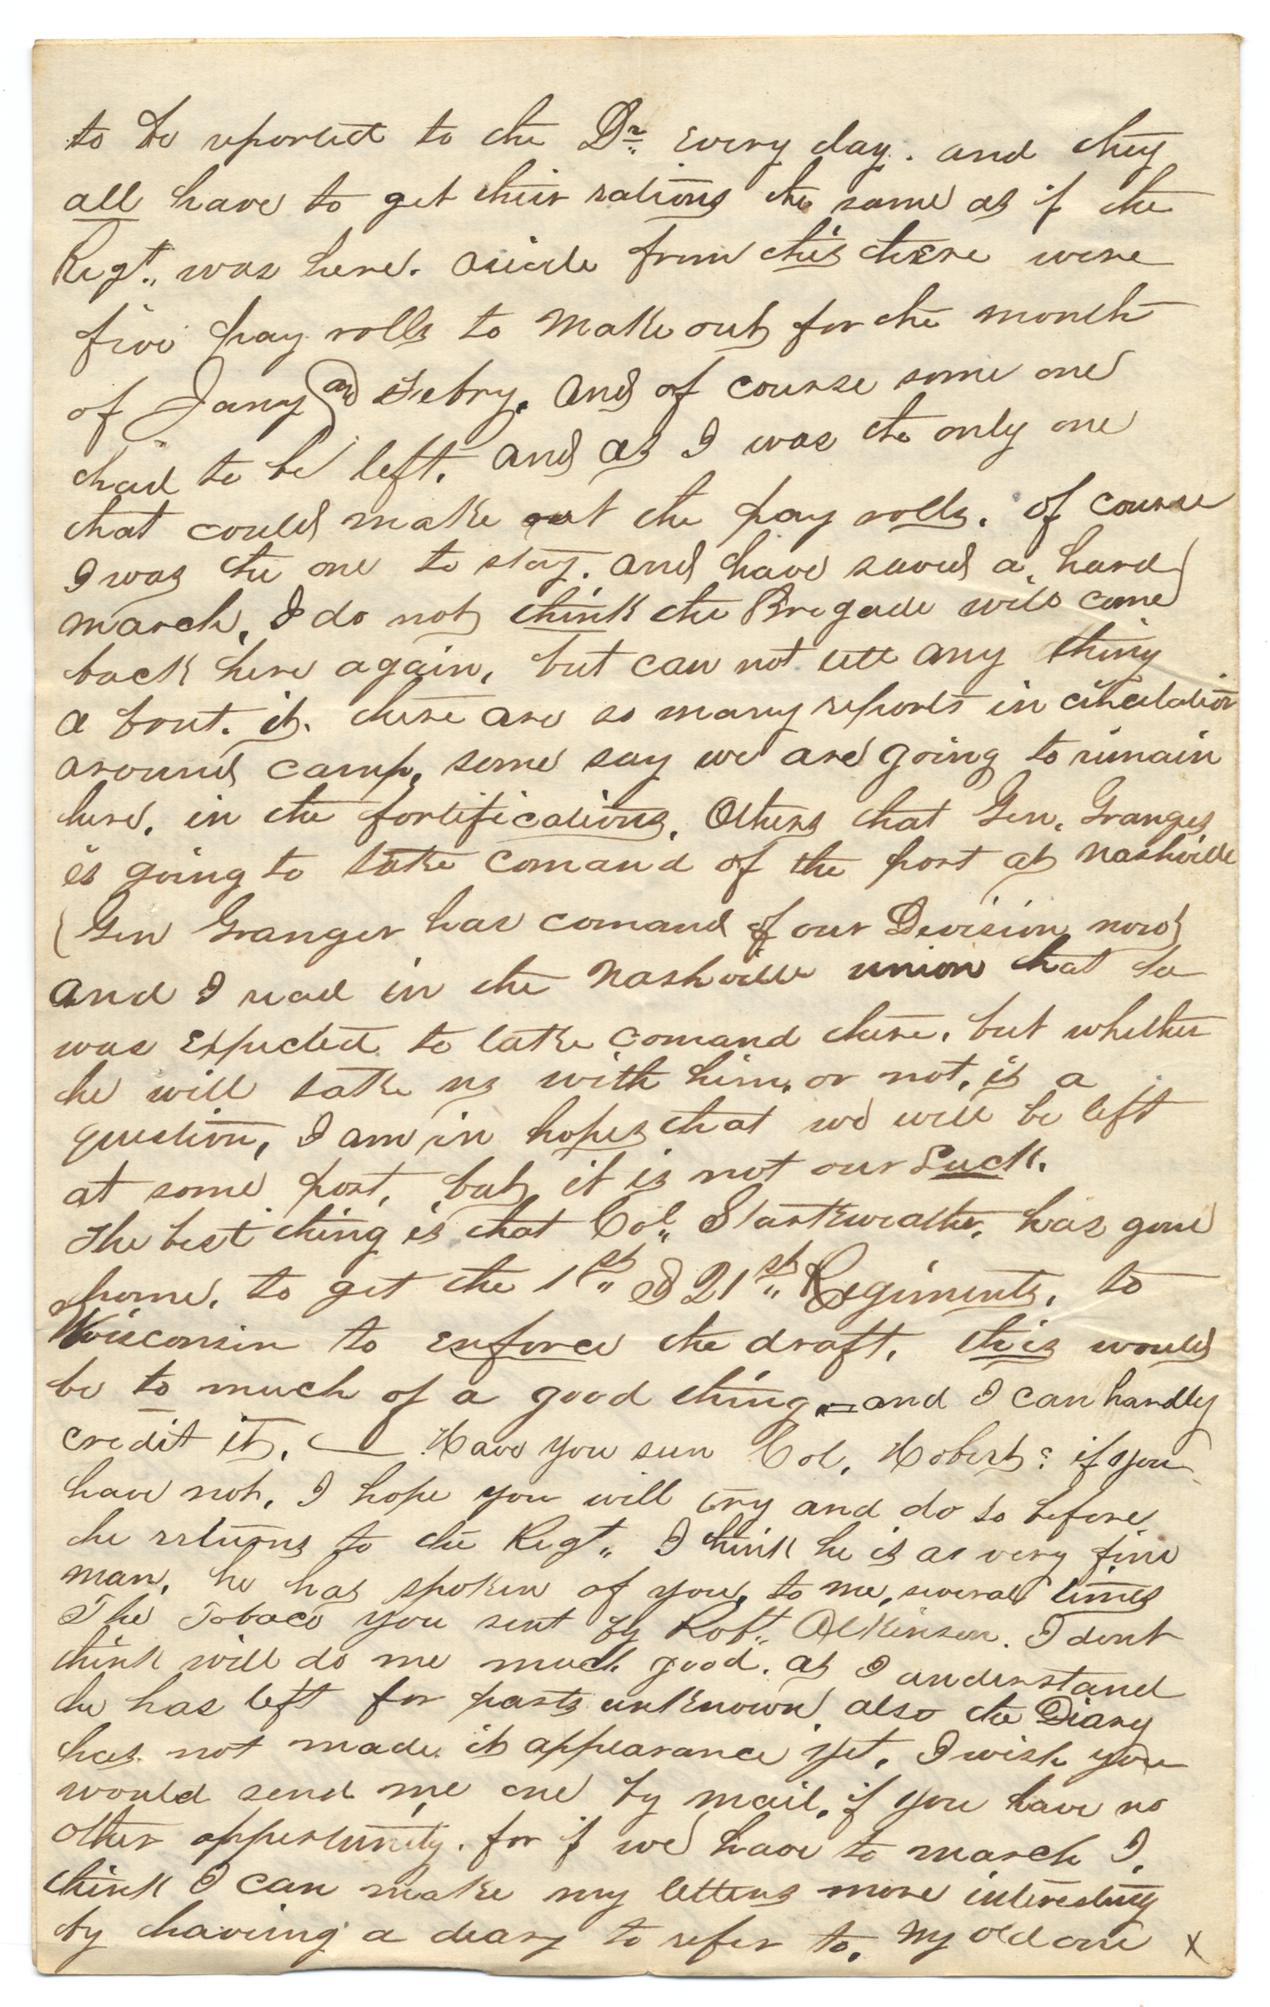 to be reported to the Dr. every day. and they
all have to get their rations the same as if the
Regt. was here. aside from this there were
five pay rolls to make out for the month
of Jany and Febry. and of course some one
had to be left. and as I was the only one
that could make out the pay rolls. of course
I was the one to stay. and have saved a hard
march. I do not think the Brigade will come
back here again, but can not tell any thing
a bout. it. there are so many reports in circulation
around camp, some say we are going to remain
here. in the fortifications. Others that Gen. Granger
is going to take comand of the post at Nashville
(Gen Granger has comand of our Division now)
and I read in the Nashville union that he
was expected to take comand there. but whether
he will take us with him, or not, is a
question, I am in hopes that we will be left
at some post, but it is not our Luck.
The best thing is that Col. Starkweather, has gone
home, to get the 1st & 21st Regiments, to
Wisconsin to enforce the draft, this would
be to much of a good thing. = and I can hardly
credit it, — Have you seen Col. Hobert? if you
have not, I hope you will try and do so before
he returns to the Regt. I think he is a very fine
man, he has spoken of you, to me, several times
The Tobaco you sent by Robt. Atkinson. I dont
think will do me much good. as I understand
he has left for parts unknown, also the Diary
has not made it appearance yet. I wish you
would send me one by mail, if you have no
other oppertunity. for if we have to march I,
think I can make my letters more interesting
by haveing a diary to refer to. My old one x